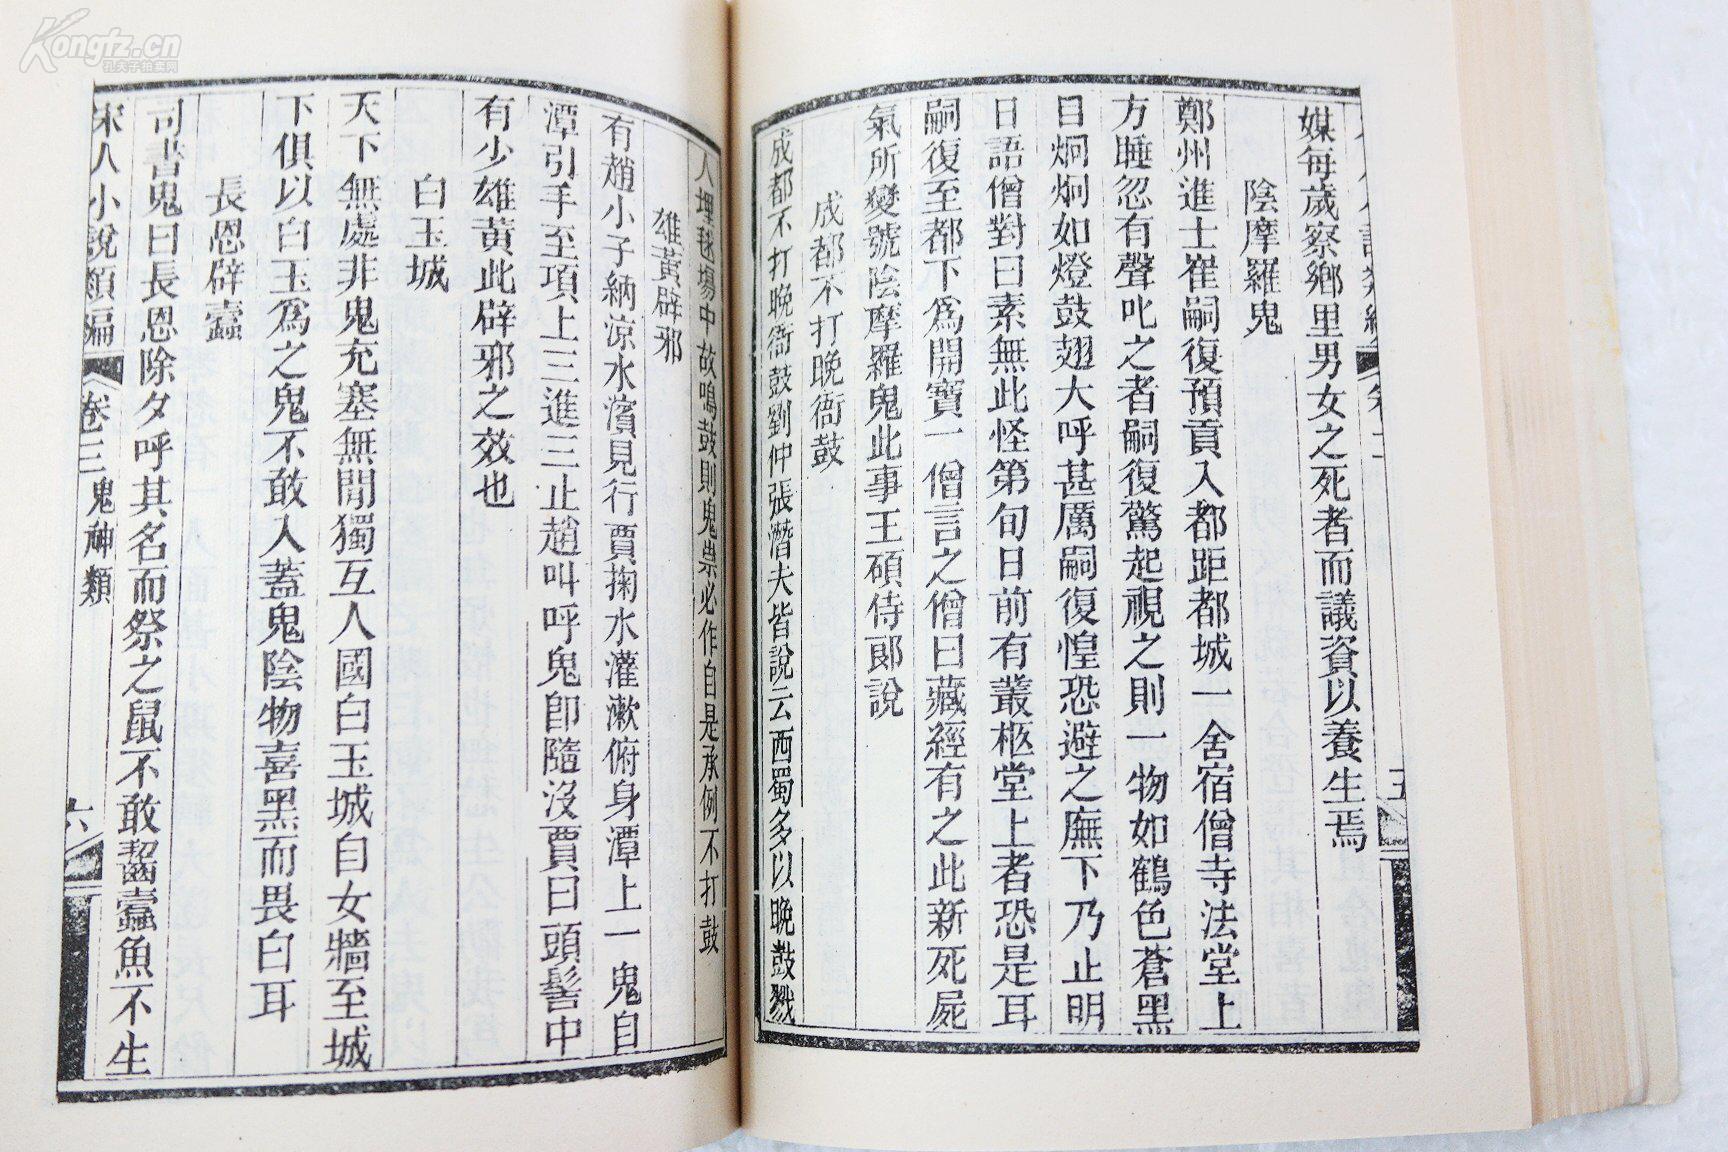 媒每歲察鄉里男女之死者而議資以養生焉
陰摩羅鬼
鄭州進士崔嗣復預貢入都距都城一舍宿僧寺法堂上
方睡忽有聲叱之者嗣復驚起視之則一物如鶴色蒼黑
目炯炯如燈鼓翅大呼甚厲嗣復惶恐避之廡下乃止明
日語僧對曰素無此怪第旬日前有叢柩堂上者恐是耳
嗣復至都下爲開寶一僧言之僧曰藏經有之此新死屍
氣所變號陰摩羅鬼此事王碩侍郎說
成都不打晚衙鼓
成都不打晚衙鼓劉仲張潛夫皆說云西蜀多以晚鼓戮
人埋毬場中故鳴鼓則鬼祟必作自是承例不打鼓
雄黃辟邪
有趙小子納涼水濱見行賈掬水灌漱俯身潭上一鬼自
潭引手至項上三進三止趙叫呼鬼卽隨沒賈曰頭髻中
有少雄黃此辟邪之效也
白玉城
天下無處非鬼充塞無閒獨互人國白玉城自女牆至城
下俱以白玉爲之鬼不敢入蓋鬼陰物喜黑而畏白耳
長恩辟蠹
司書鬼曰長恩除夕呼其名而祭之鼠不敢齧蠹魚不生
宋人小說類編 卷三 鬼神類 六
Kongfz.cn
孔夫子拍卖网